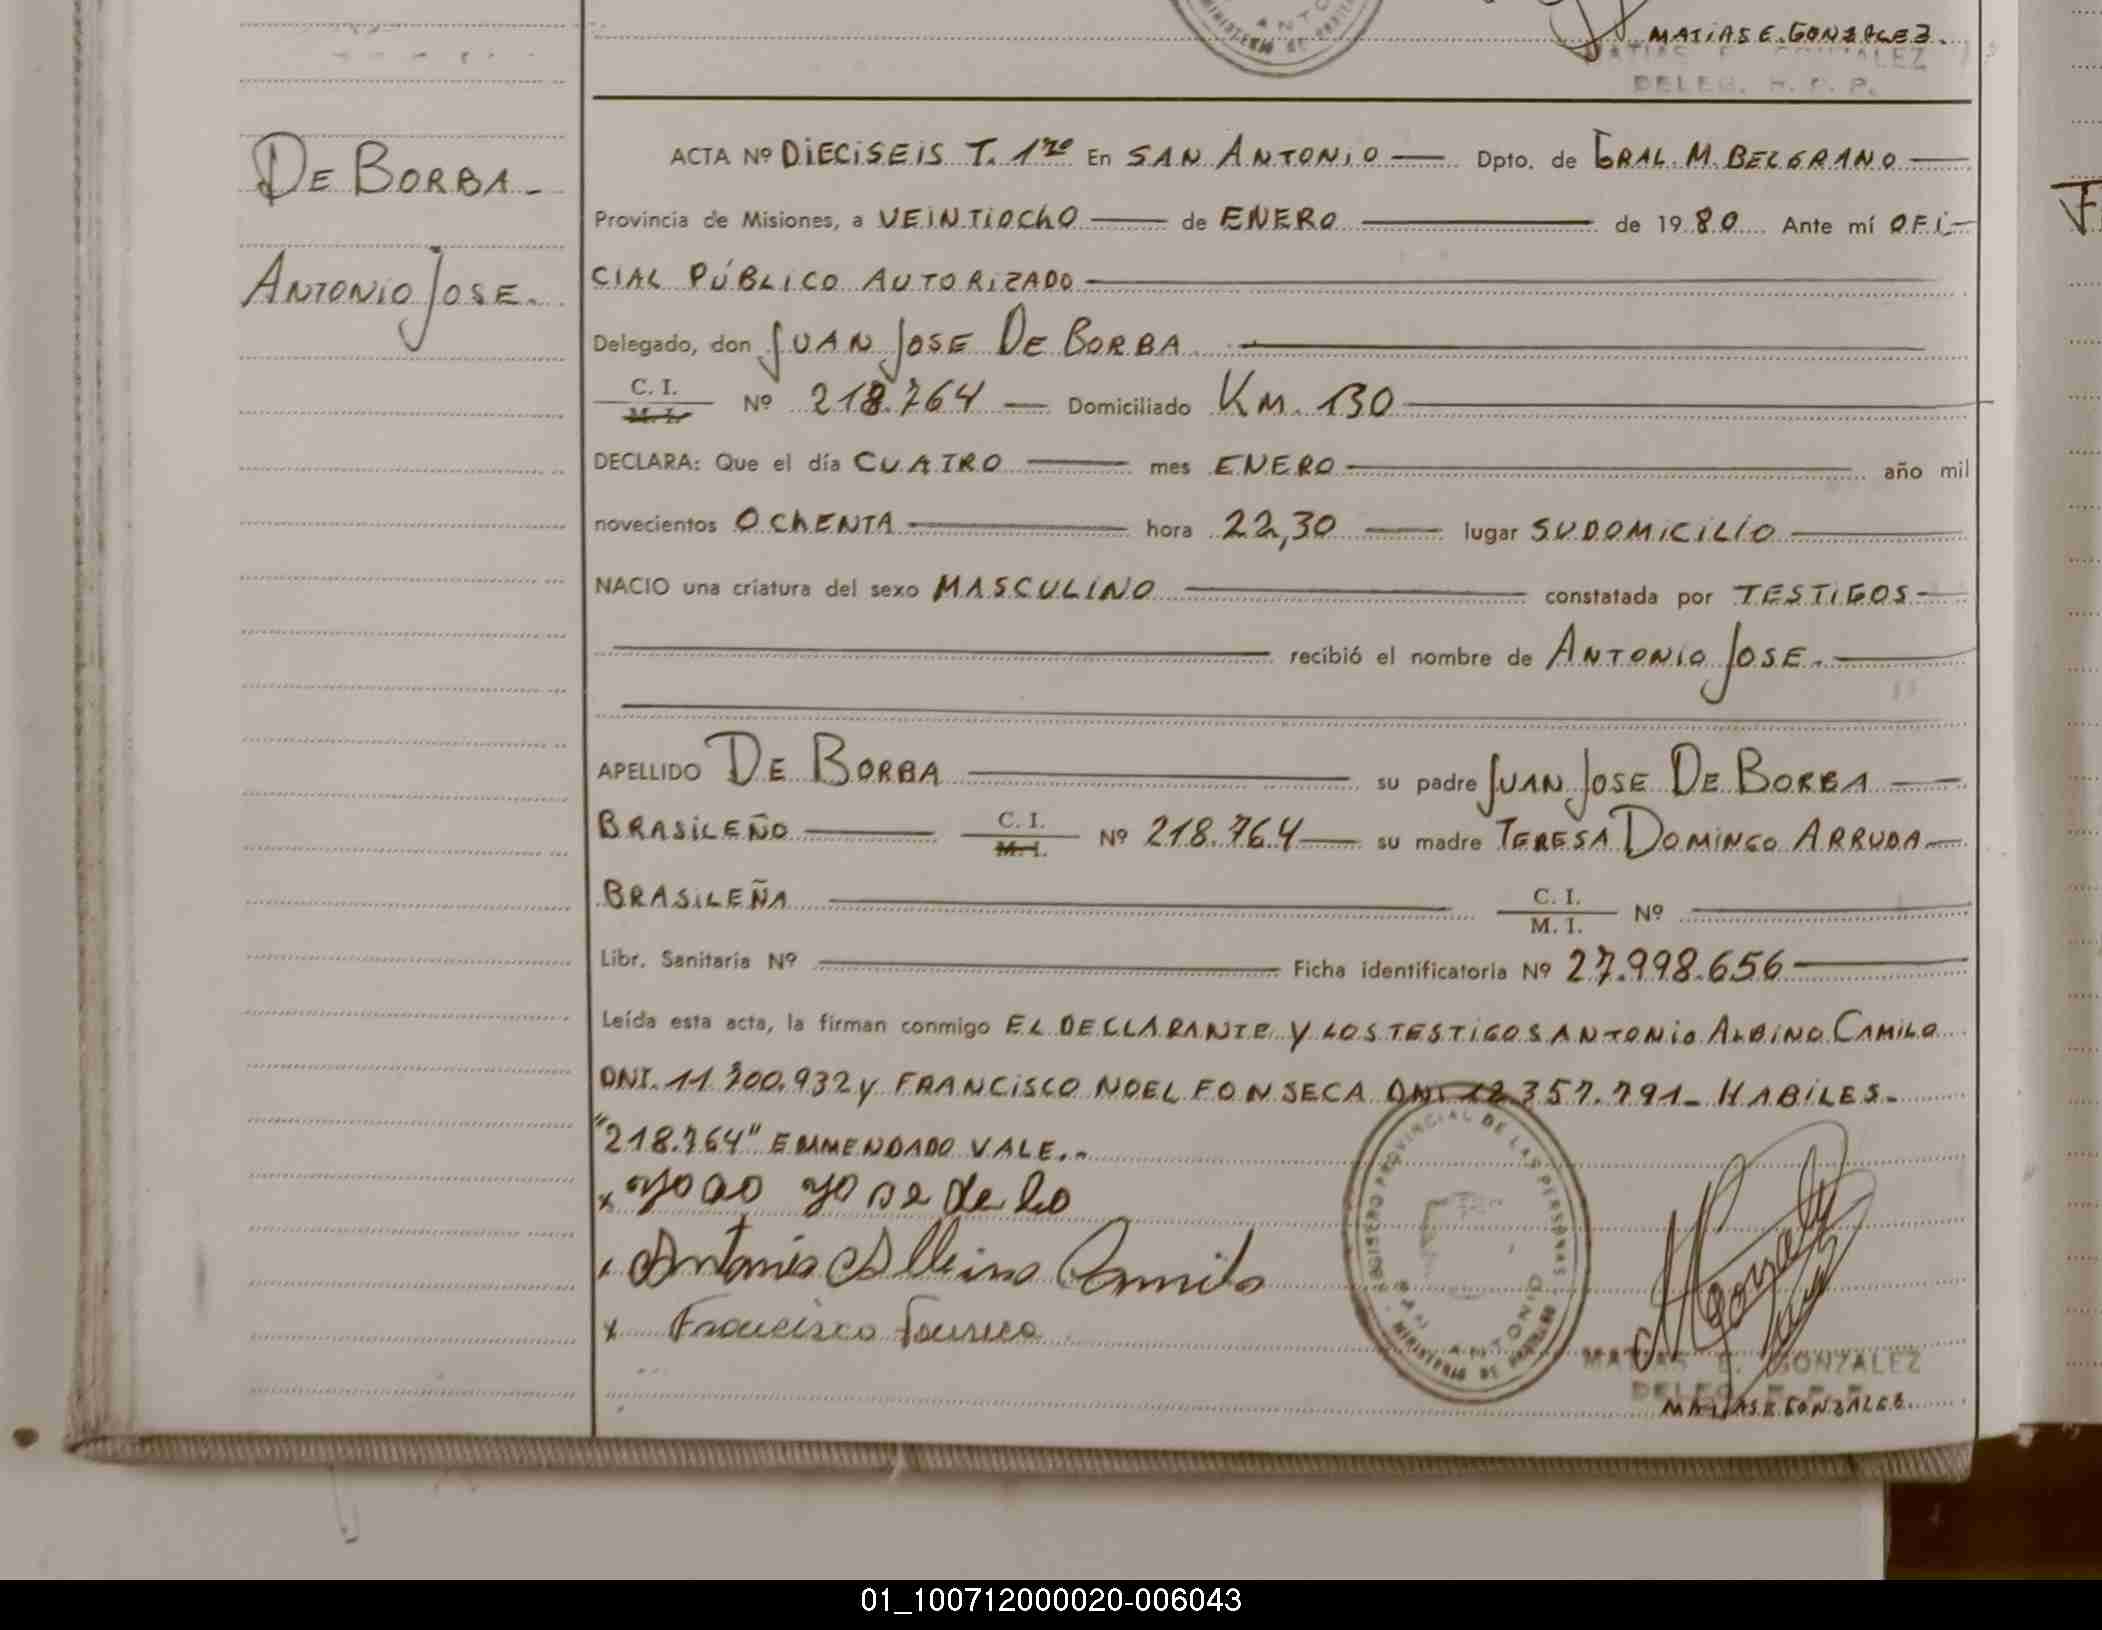 MATIAS E. GONZALEZ.
MATIAS E. GONZALEZ
DELEG. R. P. P.
DE BORBA -
ANTONIO JOSE.
ACTA Nº DIECISEIS T. 1ro En SAN ANTONIO Dpto. de GRAL. M. BELGRANO
Provincia de Misiones, a VEINTIOCHO de ENERO de 1980 Ante mí OFI-
CIAL PÚBLICO AUTORIZADO
Delegado, don JUAN JOSE DE BORBA
C. I.
M. I.
Nº 218.764 Domiciliado KM. 130
DECLARA: Que el día CUATRO mes ENERO año mil
novecientos OCHENTA hora 22,30 lugar SU DOMICILIO
NACIO una criatura del sexo MASCULINO constatada por TESTIGOS
recibió el nombre de ANTONIO JOSE.
APELLIDO DE BORBA su padre JUAN JOSE DE BORBA
BRASILEÑO C. I. M. I. Nº 218.764 su madre TERESA DOMINGO ARRUDA
BRASILEÑA C. I. M. I. Nº
Libr. Sanitaria Nº Ficha identificatoria Nº 27.998.656
Leída esta acta, la firman conmigo EL DECLARANTE Y LOS TESTIGOS ANTONIO ALBINO CAMILO
DNI. 11.700.932 y FRANCISCO NOEL FONSECA DNI 12.357.791- HABILES.-
"218.764" EMMENDADO VALE.-
x Joao Jose de bo
Antonio Albino Camilo
x Francisco Fonseca
REGISTRO PROVINCIAL DE LAS PERSONAS
SAN ANTONIO
MINISTERIO DE GOBIERNO
MATIAS E. GONZALEZ
DELEG. R. P. P.
MATIAS E. GONZALEZ
01_100712000020-006043